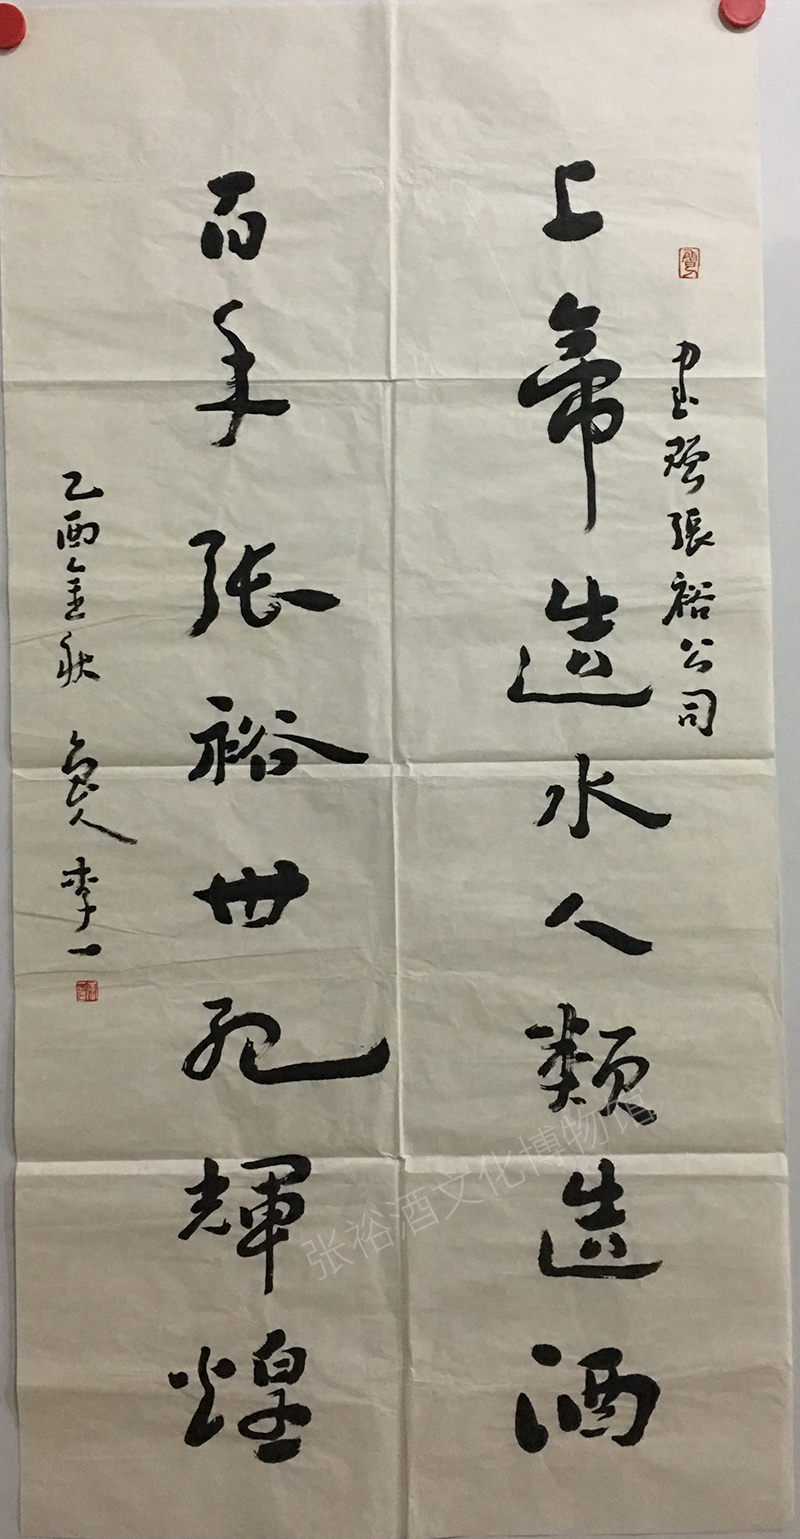 書贈張裕公司
上帝造水人類造酒
百年张裕世纪輝煌
乙酉金秋 鲁人 李一
张裕酒文化博物馆